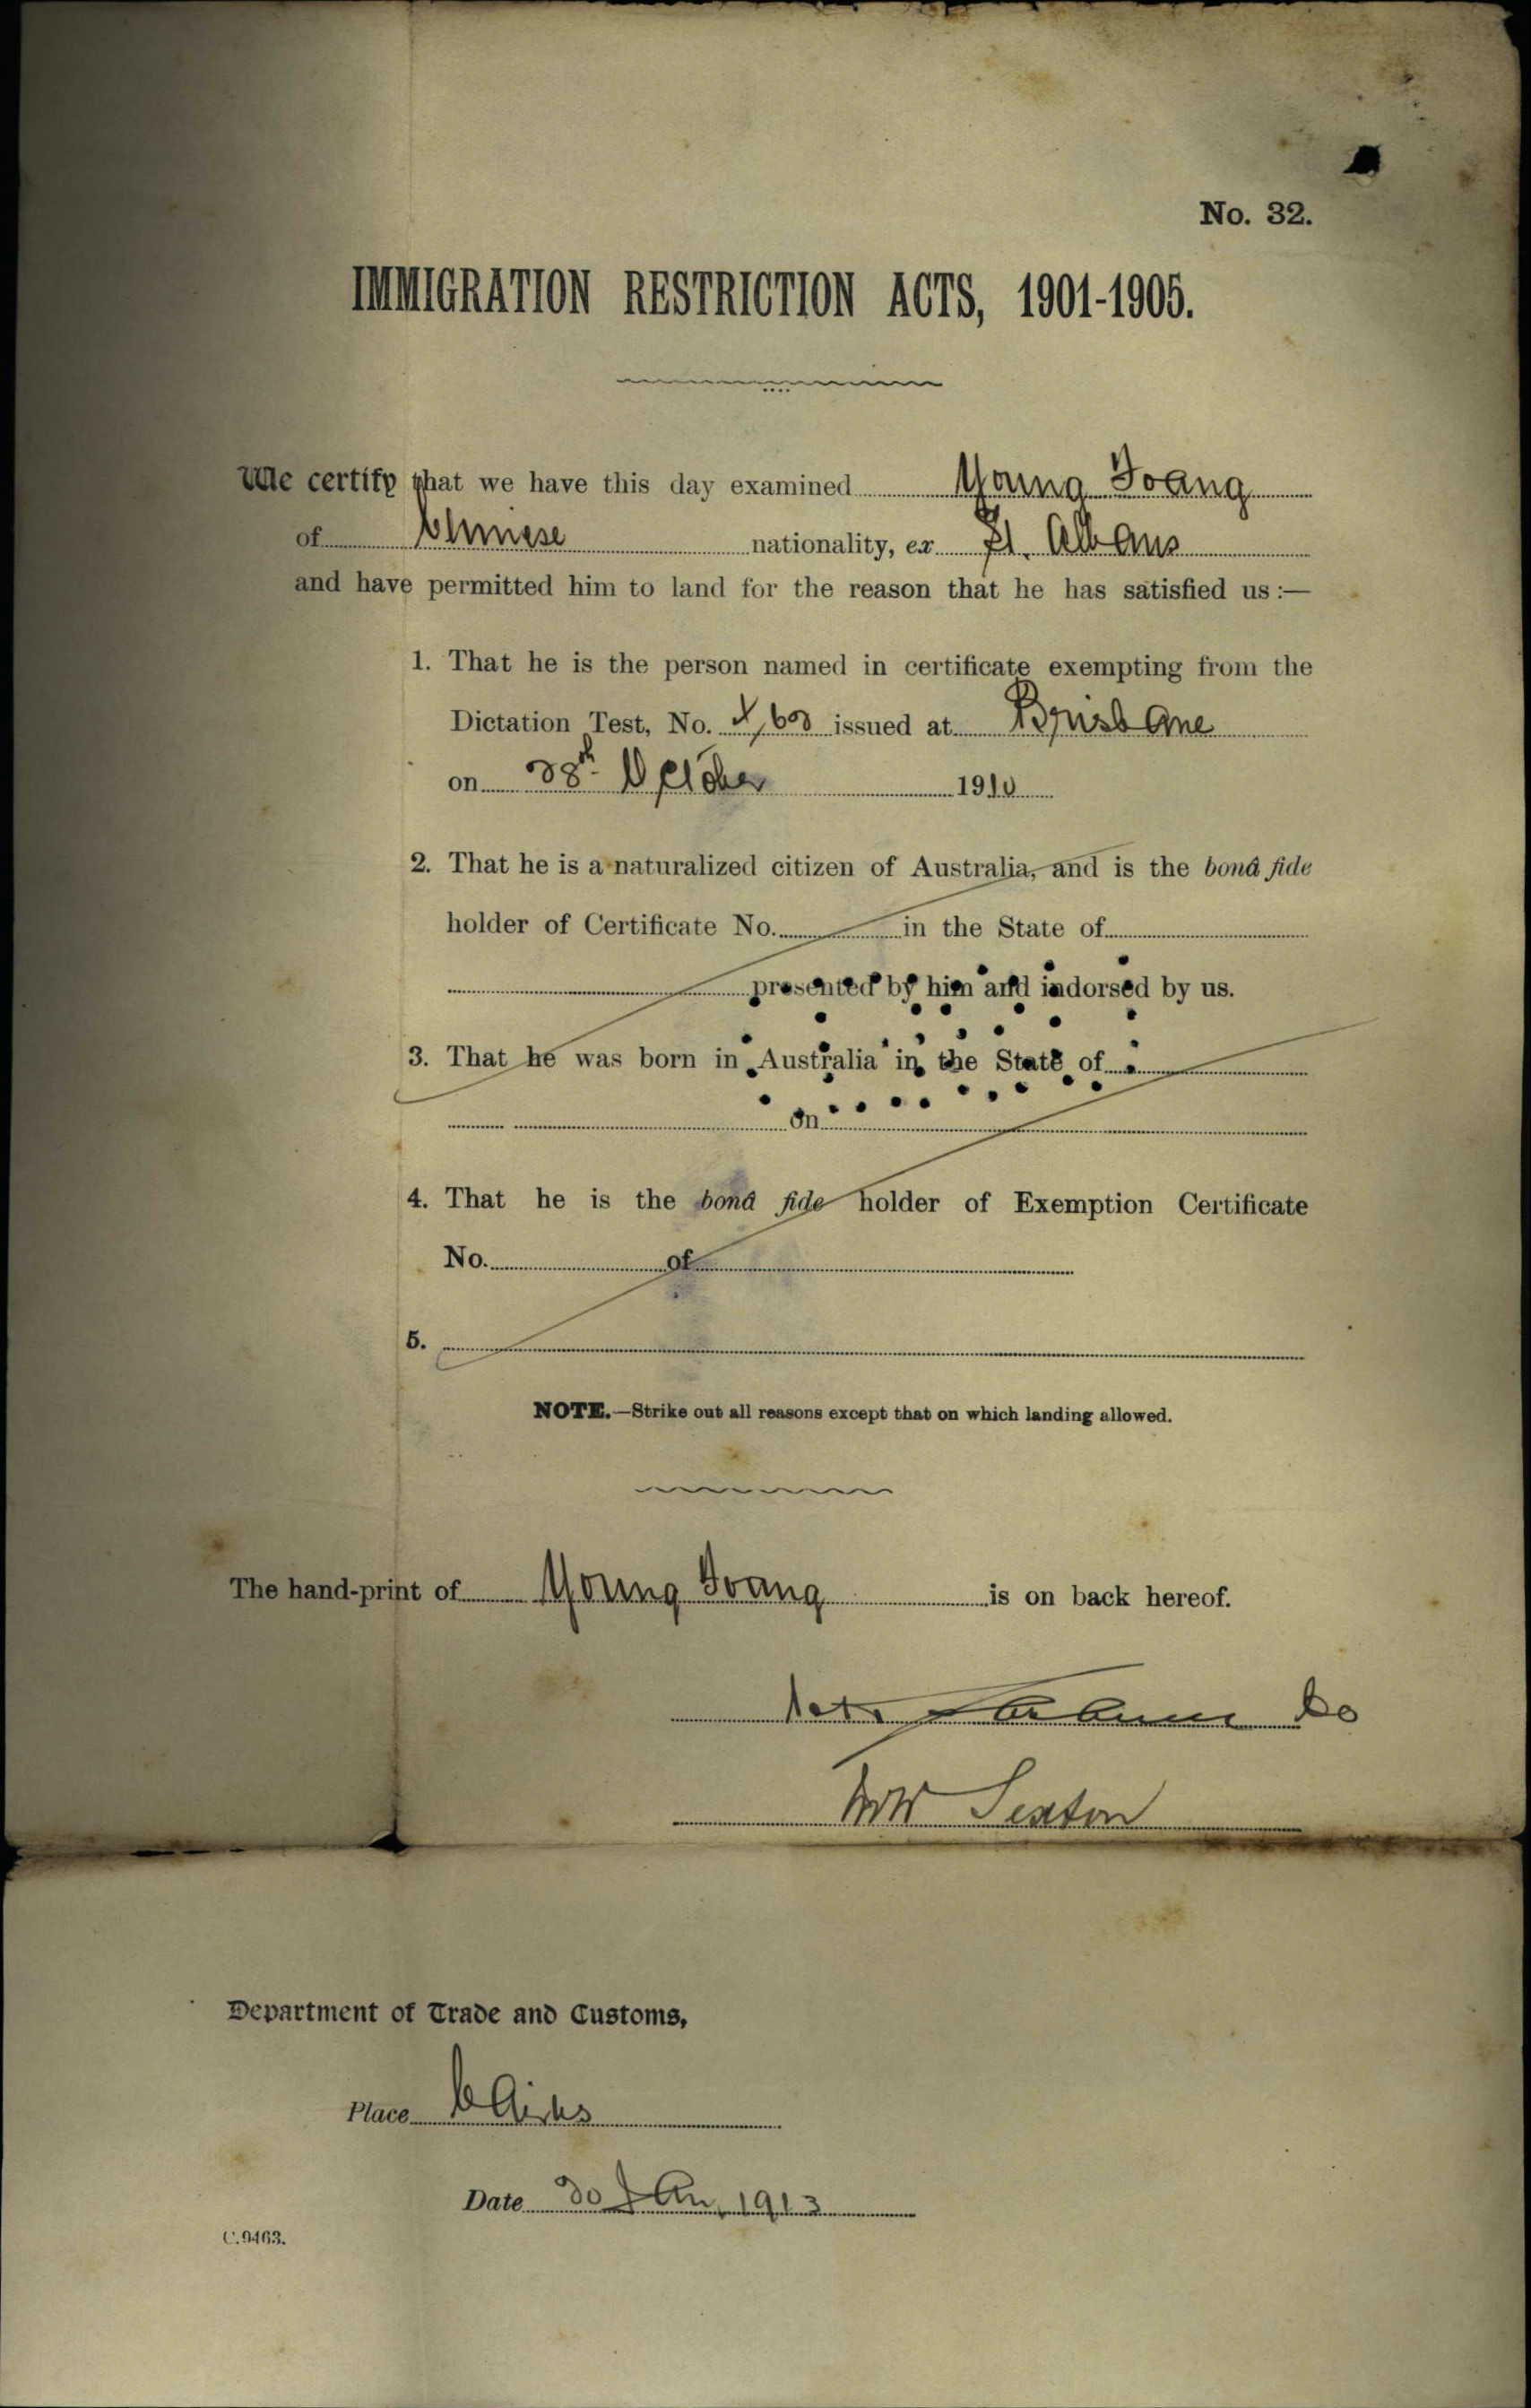 No. 32.
IMMIGRATION RESTRICTION ACTS, 1901-1905.
We certify that we have this day examined Young
of Chinese nationality, ex St. Albans
and have permitted him to land for the reason that he has satisfied us:—
1. That he is the person named in certificate exempting from the
Dictation Test, No. issued at Brisbane
on 28th October 1910
2. That he is a naturalized citizen of Australia, and is the bonâ fide
holder of Certificate No. in the State of
presented by him and indorsed by us.
3. That he was born in Australia in the State of
on
4. That he is the bonâ fide holder of Exemption Certificate
No. of
5.
NOTE.—Strike out all reasons except that on which landing allowed.
The hand-print of Young is on back hereof.
Sexton
Department of Trade and Customs,
Place Cairns
Date 30 Jan, 1913
C.9463.